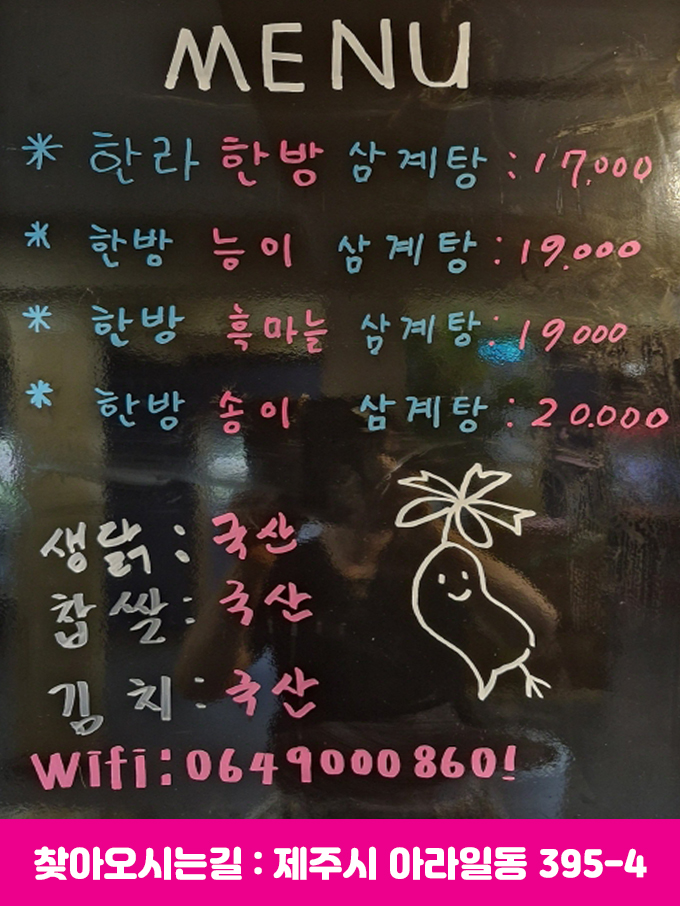 MENU
* 한라 한방 삼계탕 : 17.000
* 한방 능이 삼계탕 : 19.000
* 한방 흑마늘 삼계탕 : 19000
* 한방 송이 삼계탕 : 20.000
생닭 : 국산
찹쌀 : 국산
김치 : 국산
Wifi : 0649000860!
찾아오시는길 : 제주시 아라일동 395-4